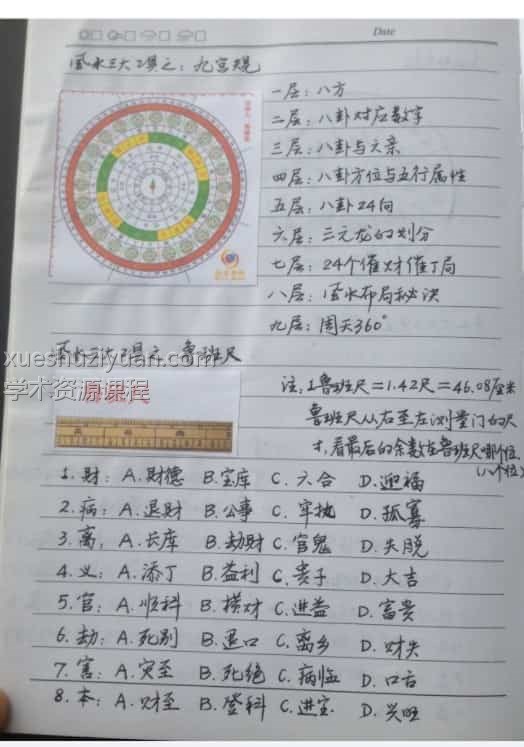 Date
风水三大工具之：九宫规
一层：八方
二层：八卦对应数字
三层：八卦与六亲
四层：八卦方位与五行属性
五层：八卦24向
六层：三元龙的划分
七层：24个催财催丁局
八层：风水布局秘诀
九层：周天360°
风水三大工具之：鲁班尺
xueshuziyuan.com
学术资源课程
注：1鲁班尺=1.42尺=46.08厘米
鲁班尺从右至左测量门的尺
寸，看最后的余数在鲁班尺哪个位
(八个位)
1.财：A.财德 B.宝库 C.六合 D.迎福
2.病：A.退财 B.公事 C.牢执 D.孤寡
3.离：A.长库 B.劫财 C.官鬼 D.失脱
4.义：A.添丁 B.益利 C.贵子 D.大吉
5.官：A.顺科 B.横财 C.进益 D.富贵
6.劫：A.死别 B.退口 C.离乡 D.财失
7.害：A.灾至 B.死绝 C.病临 D.口舌
8.本：A.财至 B.登科 C.进宝 D.兴旺